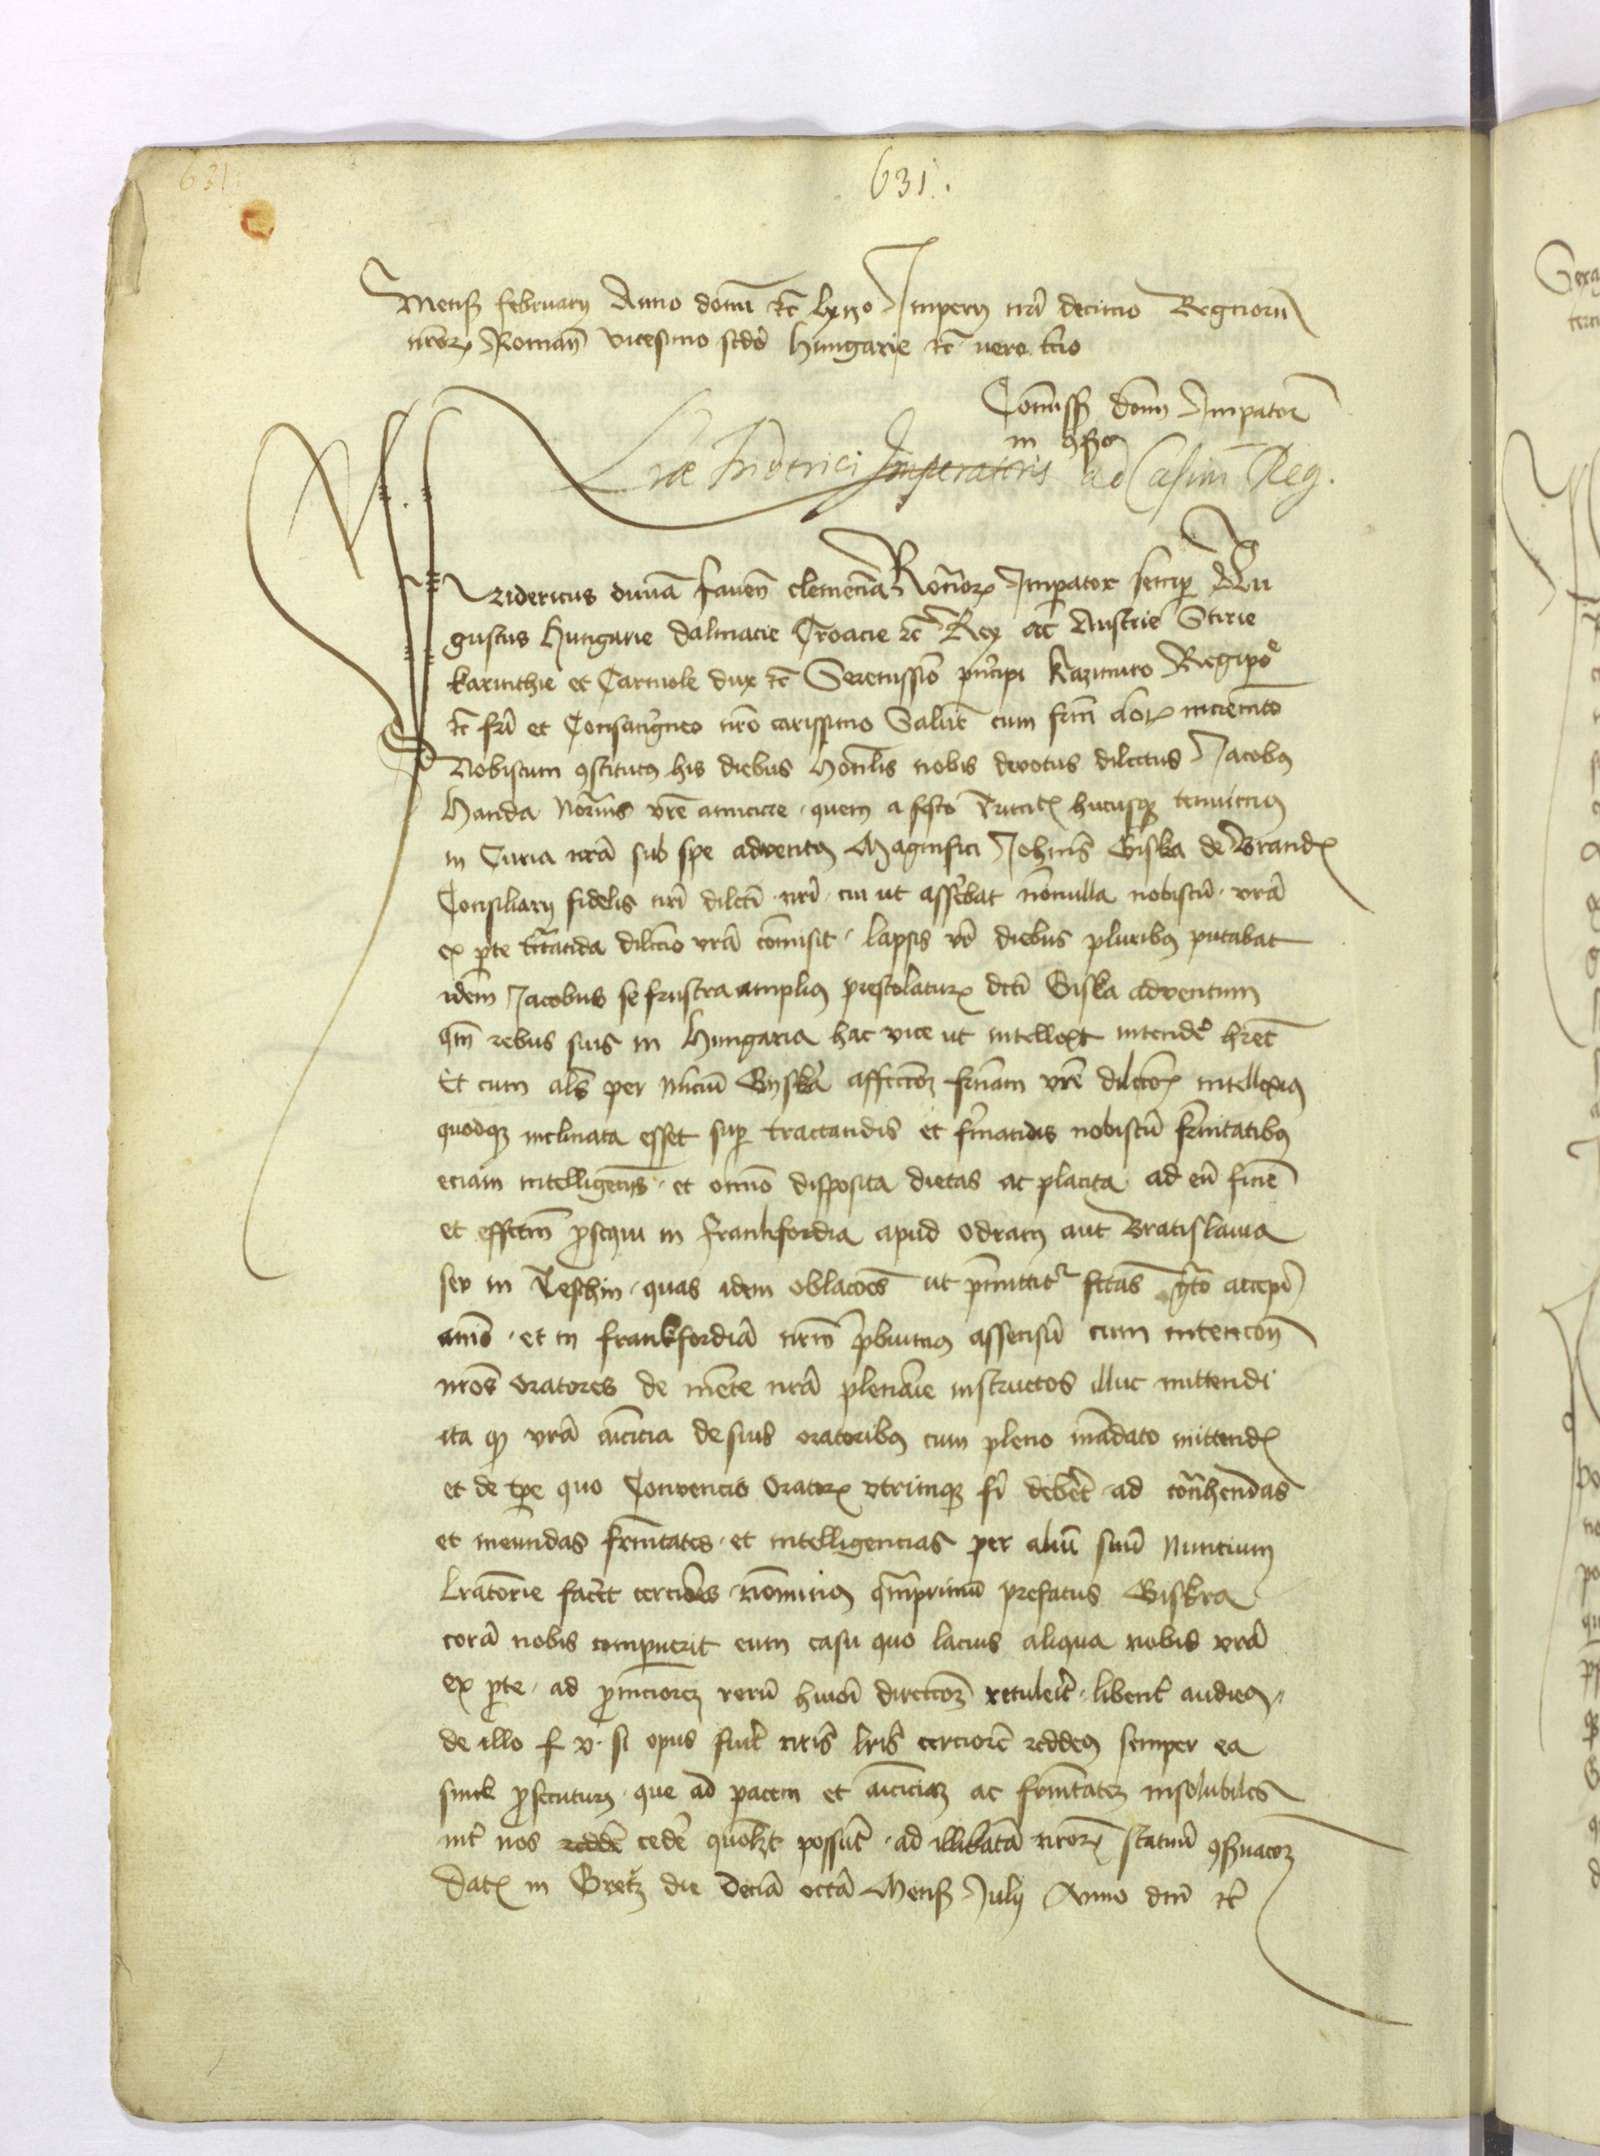 631.
631.
Mensis february Anno domi etc lxii° Impery nri decimo Regnorum
nrorum Roman vicesimo scdo Hungarie etc vero tcio
Comiss domi Impator
in 9so
Lræ Friderici Imperatoris ad Casim Reg.
Fridericus diuina fauen clemencia Romorum Imperator semp Au
gustus Hungarie dalmacie Croacie etc Rex ac Austrie Stirie
karinthie et Carniole dux etc Serenissio principi Kazimiro Regi po
etc fri et Consanguineo nro carissimo Salute cum frni amoris incremento
Nobiscum 9stitutus his diebus honlis nobis deuotus dilectus Jacobus
Handa Norius vre amicicie quem a festo hucusque tenuimus
in Curia nra sub spe aduentus Magnifici Johnis Giska de Brandis
Consiliary fidelis nri dilcti nri cui ut asserebat nonnulla nobiscu vra
ex pte tractanda dilcio vra comisit lapsis vo diebus pluribus putabat
idem Jacobus se frustra amplius prestolaturum dcti Giska aduentum
qm rebus suis in Hungaria hac vice ut intellexit intende hret
Et cum als per nunciu Gyskra affectiom frnam vre dilctois intelleximus
quodque inclinata esset sup tractandis et firmandis nobiscu frnitatibus
eciam intelligencys et omio disposita dietas ac placita ad eu fine
et effectm psequi in Frankfordia apud Odram aut Bratislauia
seu in Teschin quas idem oblacoes ut pmittitr fctas gto accepi
amo et in frankfordia nrm pbuimus assensu cum intencon
nros oratores de mente nra plenarie instructos illuc mittendi
ita q vra amicicia de suis oratoribus cum pleno mandato mittendis
et de tpe quo Conuencio oratorum vtrimque fi debet ad contrahendas
et ineundas frnitates et intelligencias per aliu suu nuncium
Lratorie facet cerciores nonminus quamprimu prefatus Giskra
cora nobis compuerit eum casu quo lacius aliqua nobis vra
ex pte ad pmcioem reru huioi directioem retulerit libent audiem
de illo f v si opus fuit nris lris cerciore reddem semper ea
simul psecuturi que ad pacem et amiciciam ac frnitatem insolubiles
int nos redde cede quolzt possut ad illibata nrorum statuu 9seruacom
Datum in Gretz die decia octa Mensis July Anno dni etc